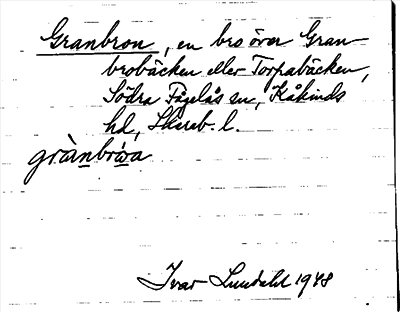 Granbron, en bro över Gran-
brobäcken eller Torpabäcken,
Södra Fågelås sn, Kåkinds
hd, Skarab. l.
grànbróa
Ivar Lundahl 1948